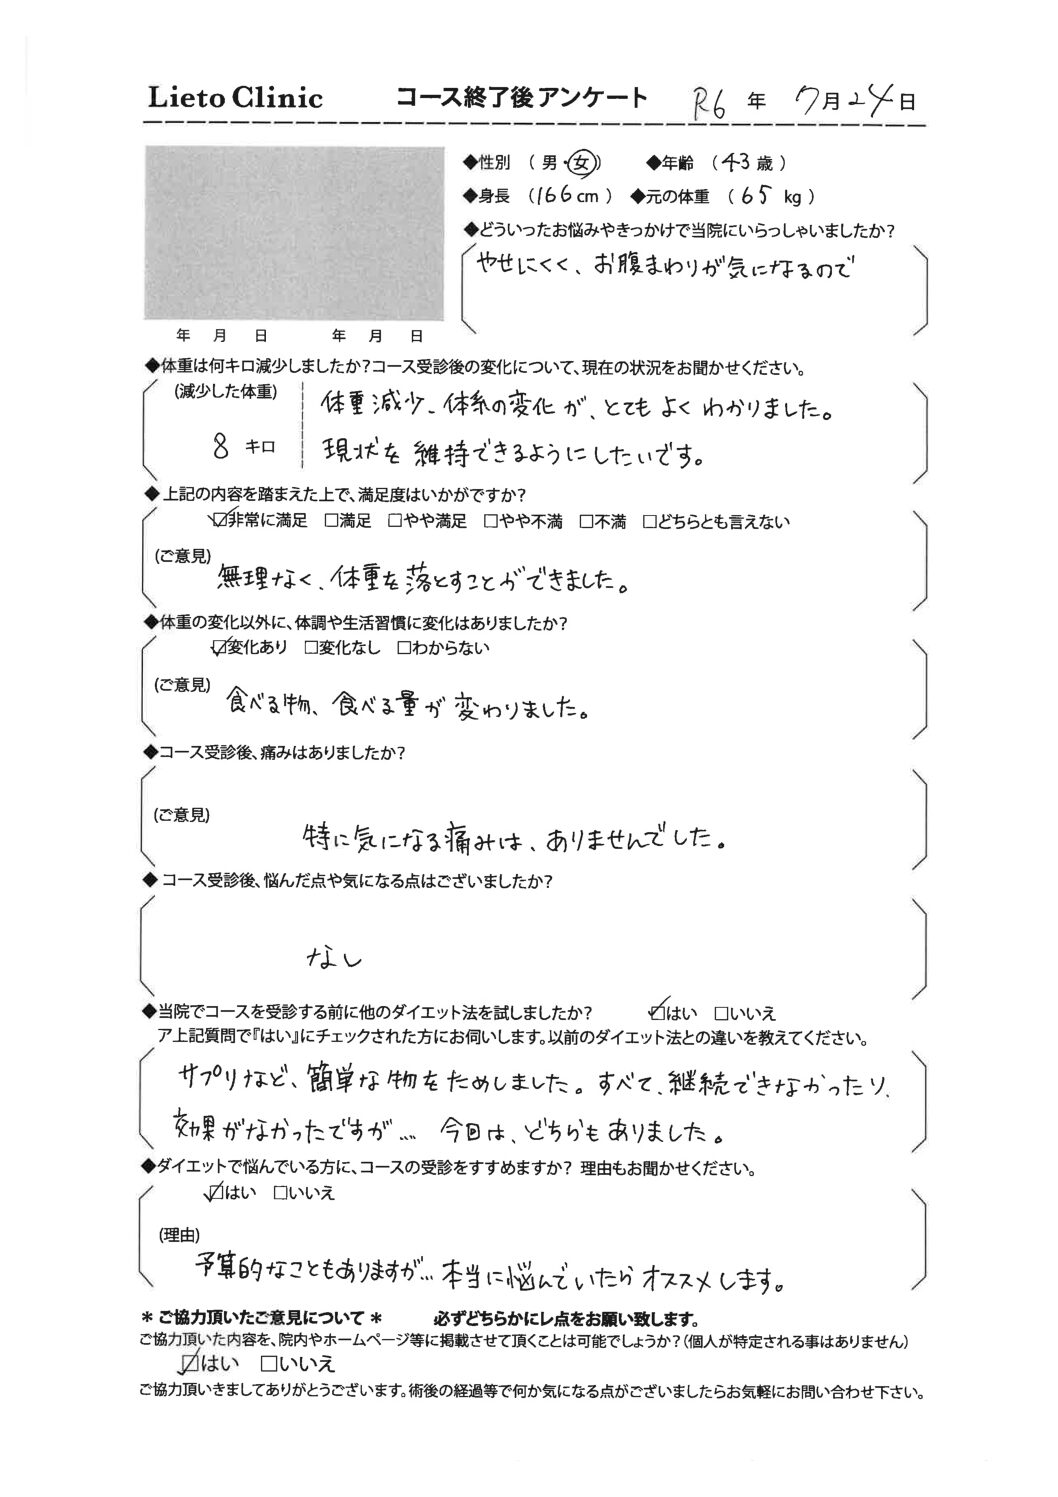 Lieto Clinic コース終了後アンケート R6 年 7月24日
◆性別 （ 男・女） ◆年齢 （43歳 ）
◆身長 （166cm ） ◆元の体重 （ 65 kg ）
◆どういったお悩みやきっかけで当院にいらっしゃいましたか？
やせにくく、お腹まわりが気になるので
年 月 日 年 月 日
◆体重は何キロ減少しましたか？コース受診後の変化について、現在の状況をお聞かせください。
(減少した体重)
体重減少、体系の変化が、とてもよくわかりました。
8 キロ
現状を維持できるようにしたいです。
◆上記の内容を踏まえた上で、満足度はいかがですか？
☑非常に満足 □満足 □やや満足 □やや不満 □不満 □どちらとも言えない
(ご意見)
無理なく、体重を落とすことができました。
◆体重の変化以外に、体調や生活習慣に変化はありましたか？
☑変化あり □変化なし □わからない
(ご意見)
食べる物、食べる量が変わりました。
◆コース受診後、痛みはありましたか？
(ご意見)
特に気になる痛みは、ありませんでした。
◆コース受診後、悩んだ点や気になる点はございましたか？
なし
◆当院でコースを受診する前に他のダイエット法を試しましたか？ ☑はい □いいえ
ア上記質問で『はい』にチェックされた方にお伺いします。以前のダイエット法との違いを教えてください。
サプリなど、簡単な物をためしました。すべて、継続できなかったり、
効果がなかったですが… 今回は、どちらもありました。
◆ダイエットで悩んでいる方に、コースの受診をすすめますか？ 理由もお聞かせください。
☑はい □いいえ
(理由)
予算的なこともありますが… 本当に悩んでいたらオススメします。
＊ご協力頂いたご意見について＊ 必ずどちらかにレ点をお願い致します。
ご協力頂いた内容を、院内やホームページ等に掲載させて頂くことは可能でしょうか？（個人が特定される事はありません）
☑はい □いいえ
ご協力頂いきましてありがとうございます。術後の経過等で何か気になる点がございましたらお気軽にお問い合わせ下さい。